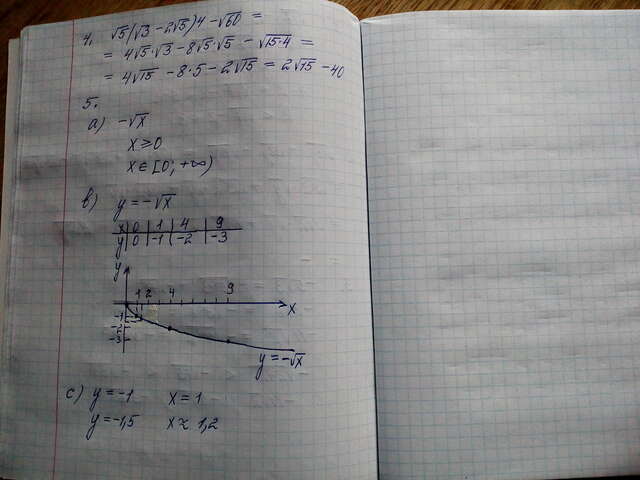 4. √5(√3 - 2√5)4 - √60 =
= 4√5·√3 - 8√5·√5 - √15·4 =
= 4√15 - 8·5 - 2√15 = 2√15 - 40
5.
a) -√x
x ≥ 0
x ∈ [0; +∞)
b) y = -√x
x | 0 | 1 | 4 | 9
y | 0 | -1 | -2 | -3
y
1 2 4 9
x
-1
-2
-3
y = -√x
c) y = -1 x = 1
y = -1,5 x ≈ 1,2